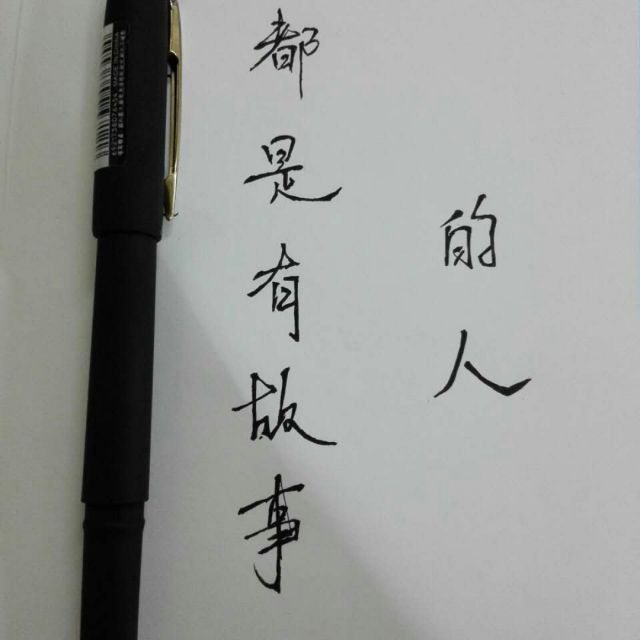 都是有故事
的人